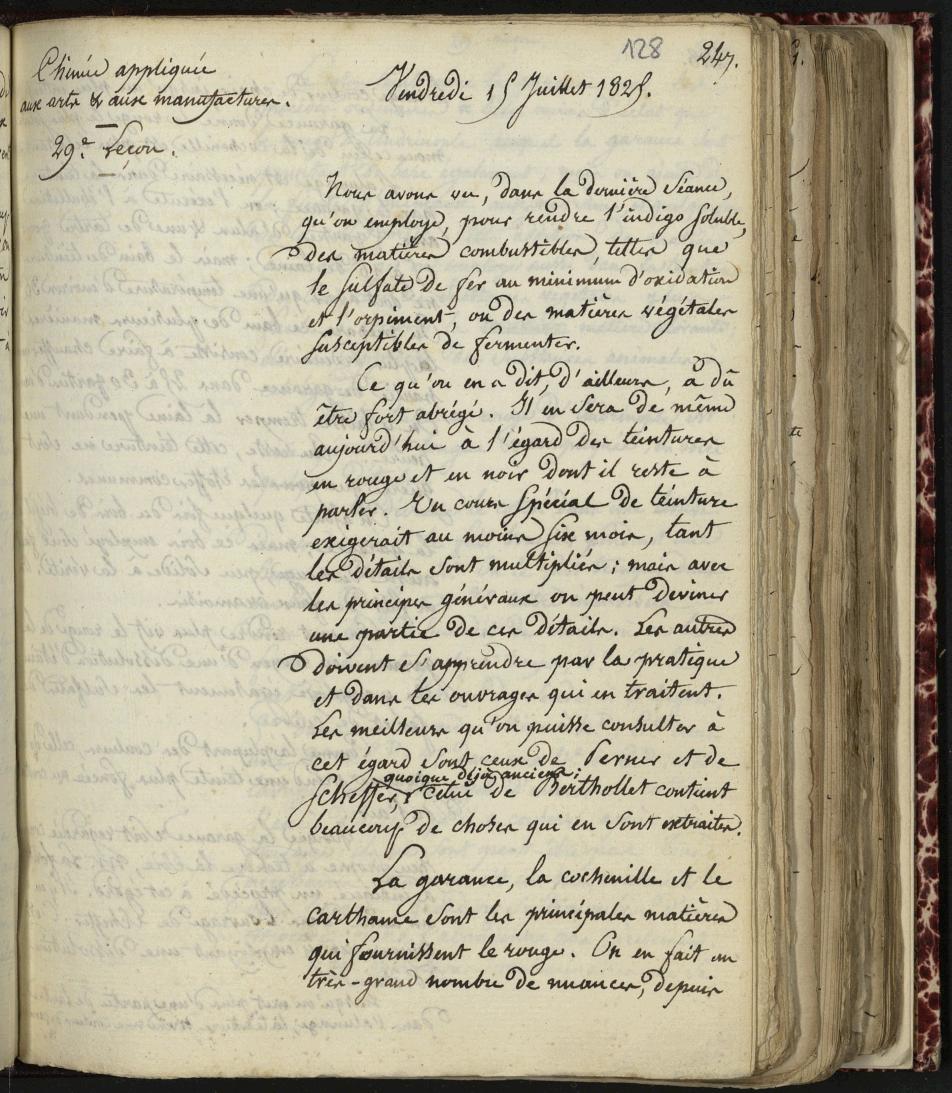 128
247.
Chimie appliquée
aux arts & aux manufactures.
Vendredi 15 Juillet 1825.
29e. Leçon.
Nous avons vu, dans la dernière Séance,
qu'on employe, pour rendre l'indigo soluble,
des matières combustibles, telles que
le sulfate de fer au minimum d'oxidation
et l'orpiment, ou des matières végétales
susceptibles de fermenter.
Ce qu'on en a dit, d'ailleurs, a dû
être fort abrégé. Il en sera de même
aujourd'hui à l'égard des teintures
en rouge et en noir dont il reste à
parler. Un cours spécial de teinture
exigerait au moins six mois, tant
les détails sont multipliés ; mais avec
les principes généraux on peut deviner
une partie de ces détails. Les autres
doivent s'apprendre par la pratique
et dans les ouvrages qui en traitent.
Les meilleurs qu'on puisse consulter à
cet égard sont ceux de Perner et de
quoique déjà anciens ;
Scheffer, celui de Berthollet contient
beaucoup de choses qui en sont extraites.
La garance, la cochenille et le
carthame sont les principales matières
qui fournissent le rouge. On en fait un
très-grand nombre de nuances, depuis